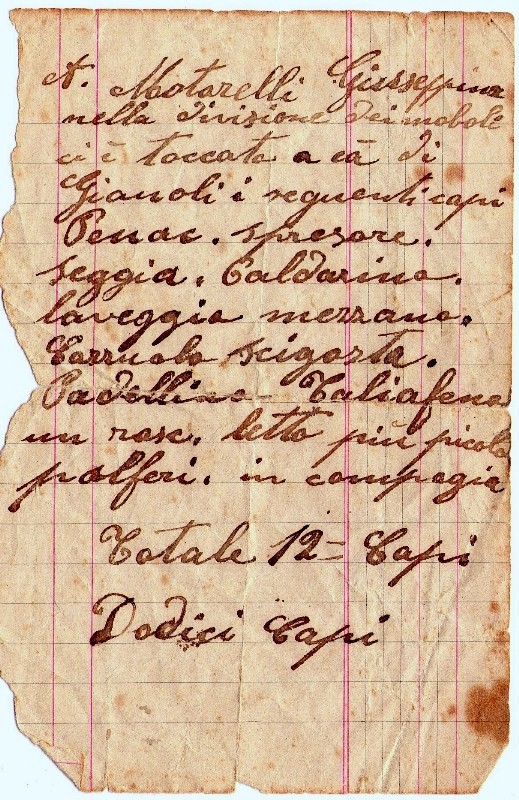 A. Motarelli Giuseppina
nella divisione dei moboli
ci è toccato a cà di
Gianoli i seguenti capi
Penac. spresore.
seggia. Caldarina.
laveggio mezzano.
Cazzuola scigosta.
Padellina Taliafena
un rase. letto più picolo
palferi. in compagia
Totale 12 = Capi
Dodici Capi